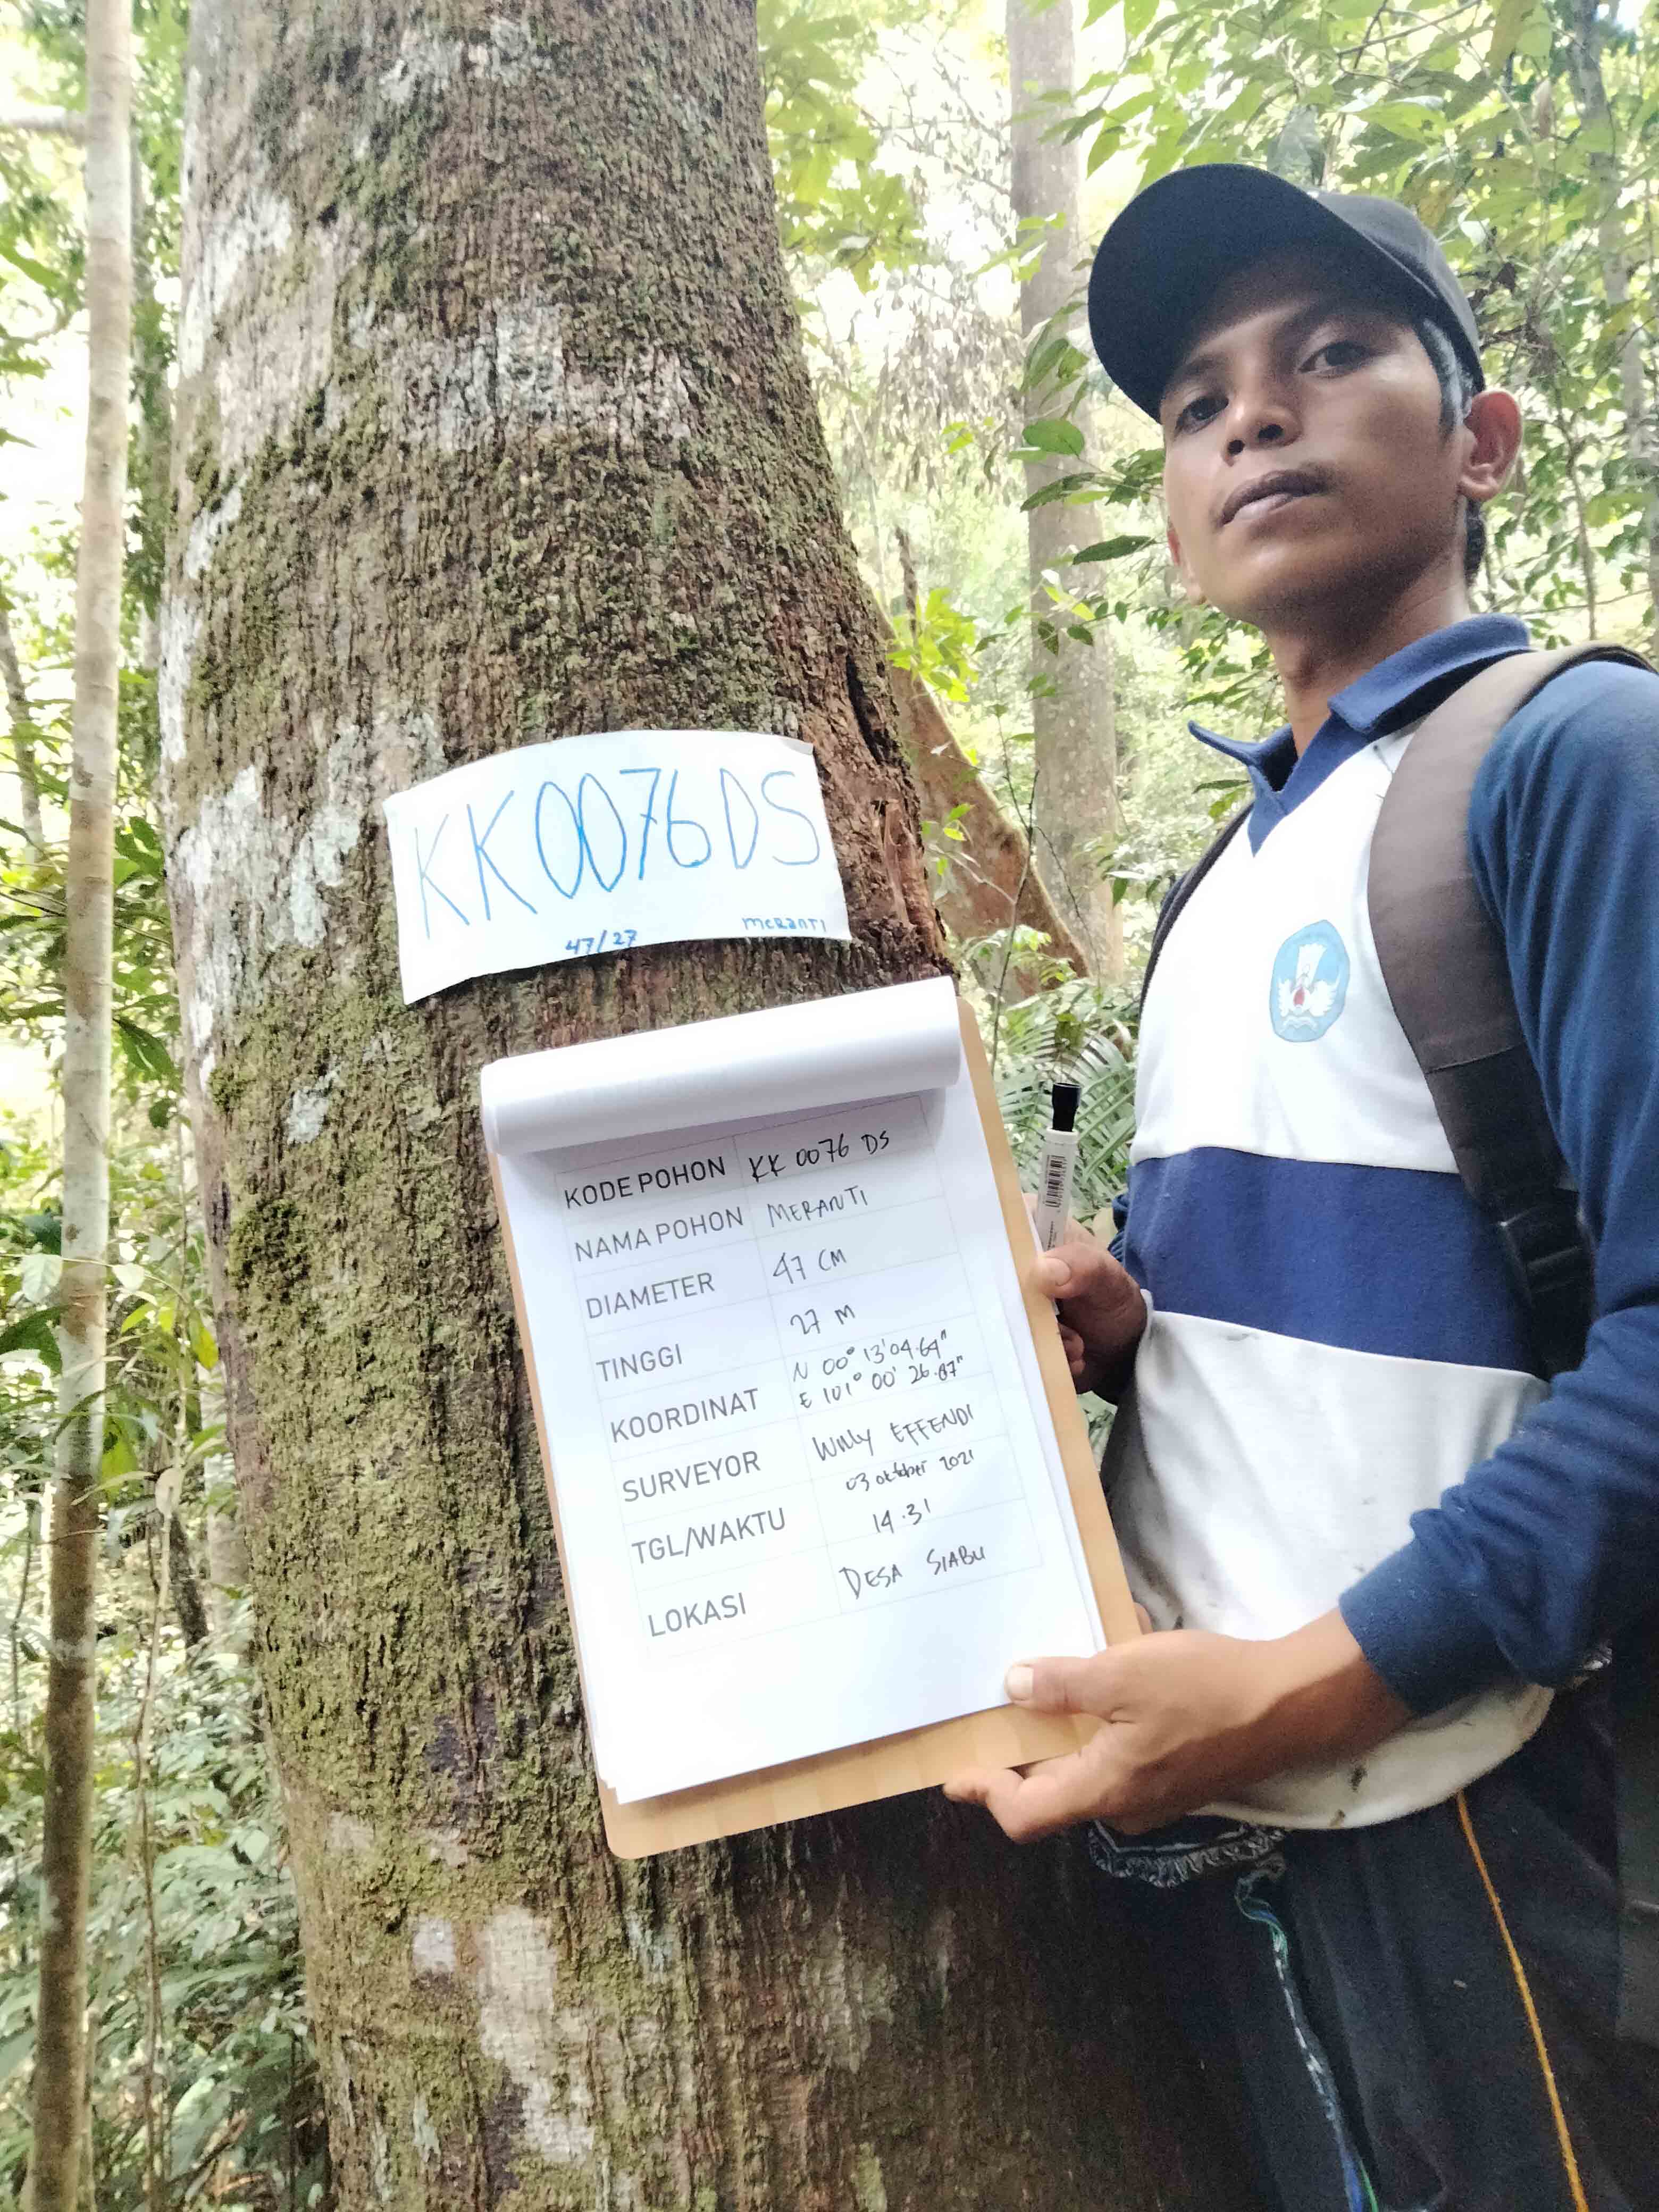 KK0076DS
47/27 meRanTI
KODE POHON KK 0076 DS
NAMA POHON MERANTI
DIAMETER 47 CM
TINGGI 27 M
KOORDINAT N 00° 13' 04.64"
E 101° 00' 26.87"
SURVEYOR Willy EFFENDI
TGL/WAKTU 03 oktober 2021
14.31
LOKASI DESA SIABU